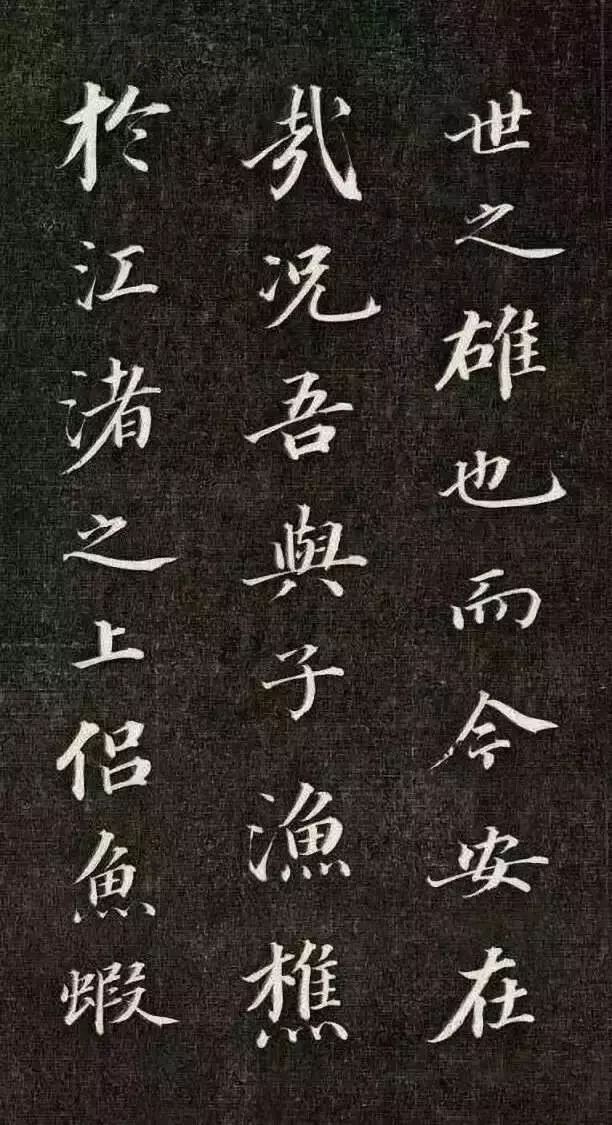 世之雄也而今安在
哉况吾與子漁樵
於江渚之上侣魚蝦